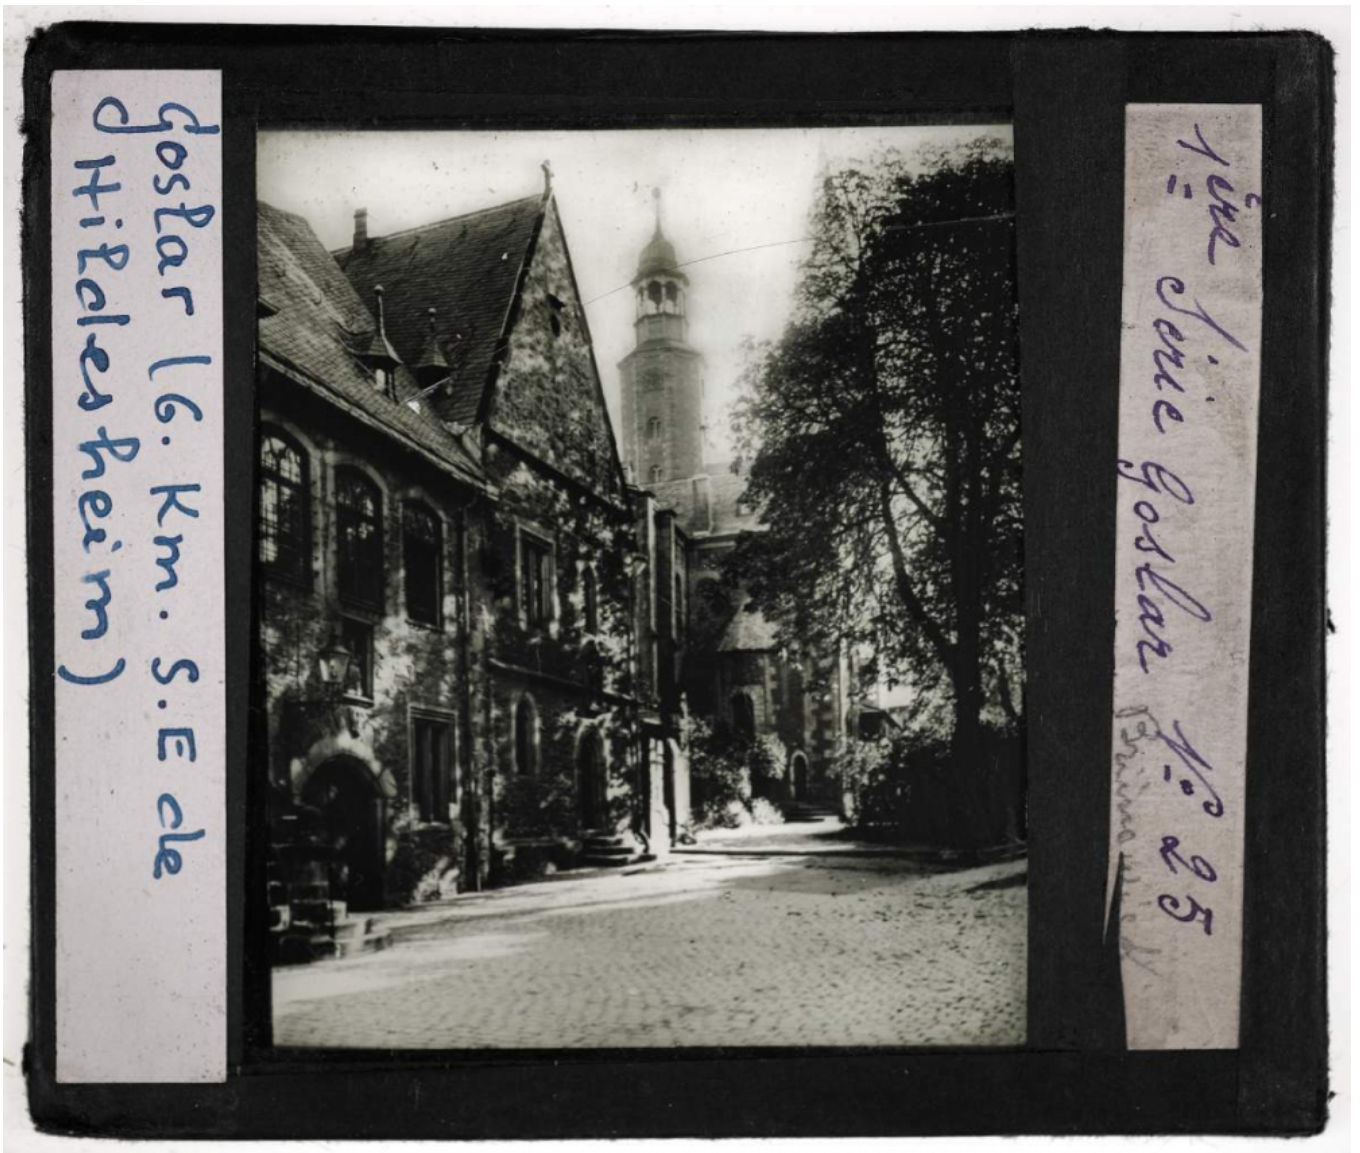 Goslar (6. Km. S.E de
Hildesheim)
1ère Serie Goslar Nº 25